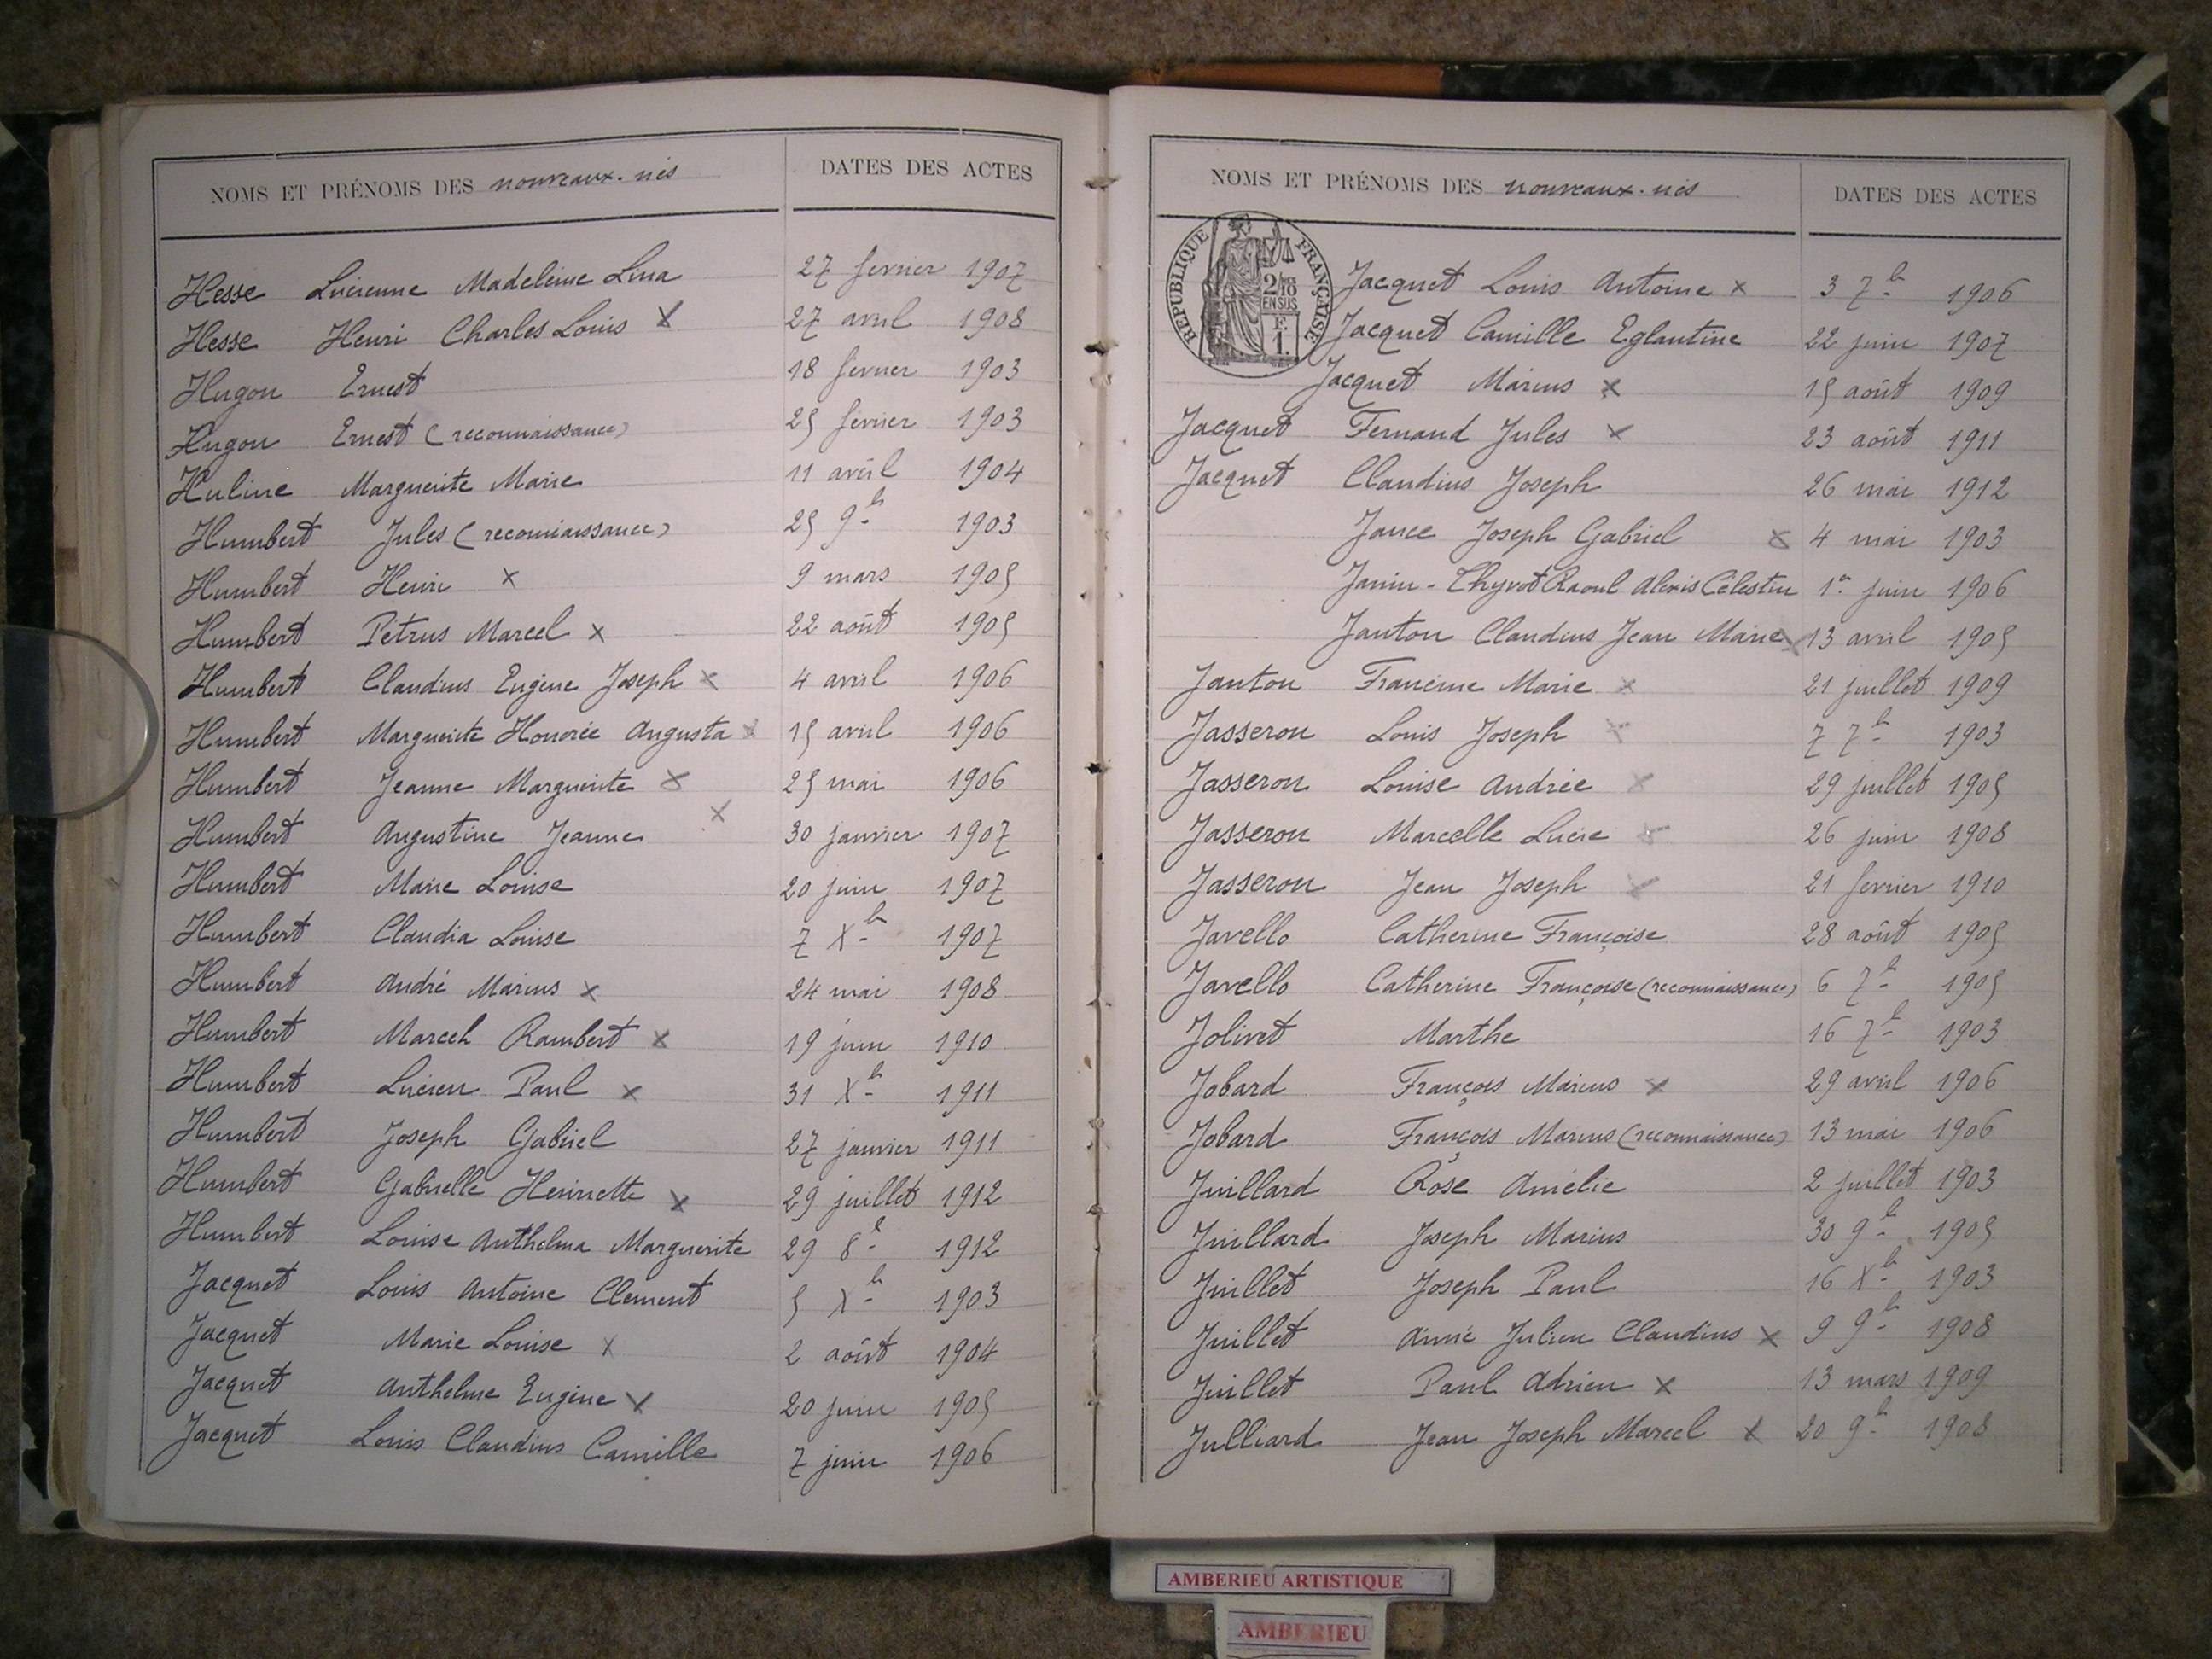 NOMS ET PRÉNOMS DES nouveaux-nés DATES DES ACTES
Hesse Lucienne Madeleine Lina 27 fevrier 1907
Hesse Henri Charles Louis X 27 avril 1908
Hugon Ernest 18 fevrier 1903
Hugon Ernest (reconnaissance) 25 fevrier 1903
Huline Marguerite Marie 11 avril 1904
Humbert Jules (reconnaissance) 25 9bre 1903
Humbert Henri X 9 mars 1905
Humbert Petrus Marcel X 22 août 1905
Humbert Claudius Eugène Joseph X 4 avril 1906
Humbert Marguerite Honorée Augusta X 15 avril 1906
Humbert Jeanne Marguerite X 25 mai 1906
Humbert Augustine Jeanne X 30 janvier 1907
Humbert Marie Louise 20 juin 1907
Humbert Claudia Louise 7 Xbre 1907
Humbert André Marius X 24 mai 1908
Humbert Marcel Rambert X 19 juin 1910
Humbert Lucien Paul X 31 Xbre 1911
Humbert Joseph Gabriel 27 janvier 1911
Humbert Gabrielle Henriette X 29 juillet 1912
Humbert Louise Anthelma Marguerite 29 8bre 1912
Jacquet Louis Antoine Clement 5 Xbre 1903
Jacquet Marie Louise X 2 août 1904
Jacquet Anthelme Eugène X 20 juin 1905
Jacquet Louis Claudius Camille 7 juin 1906
NOMS ET PRÉNOMS DES nouveaux-nés DATES DES ACTES
RÉPUBLIQUE FRANÇAISE
2/10
EN SUS
F.
1.
Jacquet Louis Antoine X 3 7bre 1906
Jacquet Camille Eglantine 22 juin 1907
Jacquet Marius X 15 août 1909
Jacquet Fernand Jules X 23 août 1911
Jacquet Claudius Joseph 26 mai 1912
Jance Joseph Gabriel X 4 mai 1903
Janin-Thyvot Raoul Alexis Célestin 1er juin 1906
Janton Claudius Jean Marie X 13 avril 1905
Janton Francine Marie X 21 juillet 1909
Jasseron Louis Joseph X 7 7bre 1903
Jasseron Louise Andrée X 29 juillet 1905
Jasseron Marcelle Lucie X 26 juin 1908
Jasseron Jean Joseph X 21 fevrier 1910
Javello Catherine Françoise 28 août 1905
Javello Catherine Françoise (reconnaissance) 6 7bre 1905
Jolivet Marthe 16 7bre 1903
Jobard François Marius X 29 avril 1906
Jobard François Marius (reconnaissance) 13 mai 1906
Juillard Rose Amélie 2 juillet 1903
Juillard Joseph Marius 30 9bre 1905
Juillet Joseph Paul 16 Xbre 1903
Juillet Aimé Julien Claudius X 9 9bre 1908
Juillet Paul Adrien X 13 mars 1909
Julliard Jean Joseph Marcel X 20 9bre 1908
AMBERIEU ARTISTIQUE
AMBERIEU